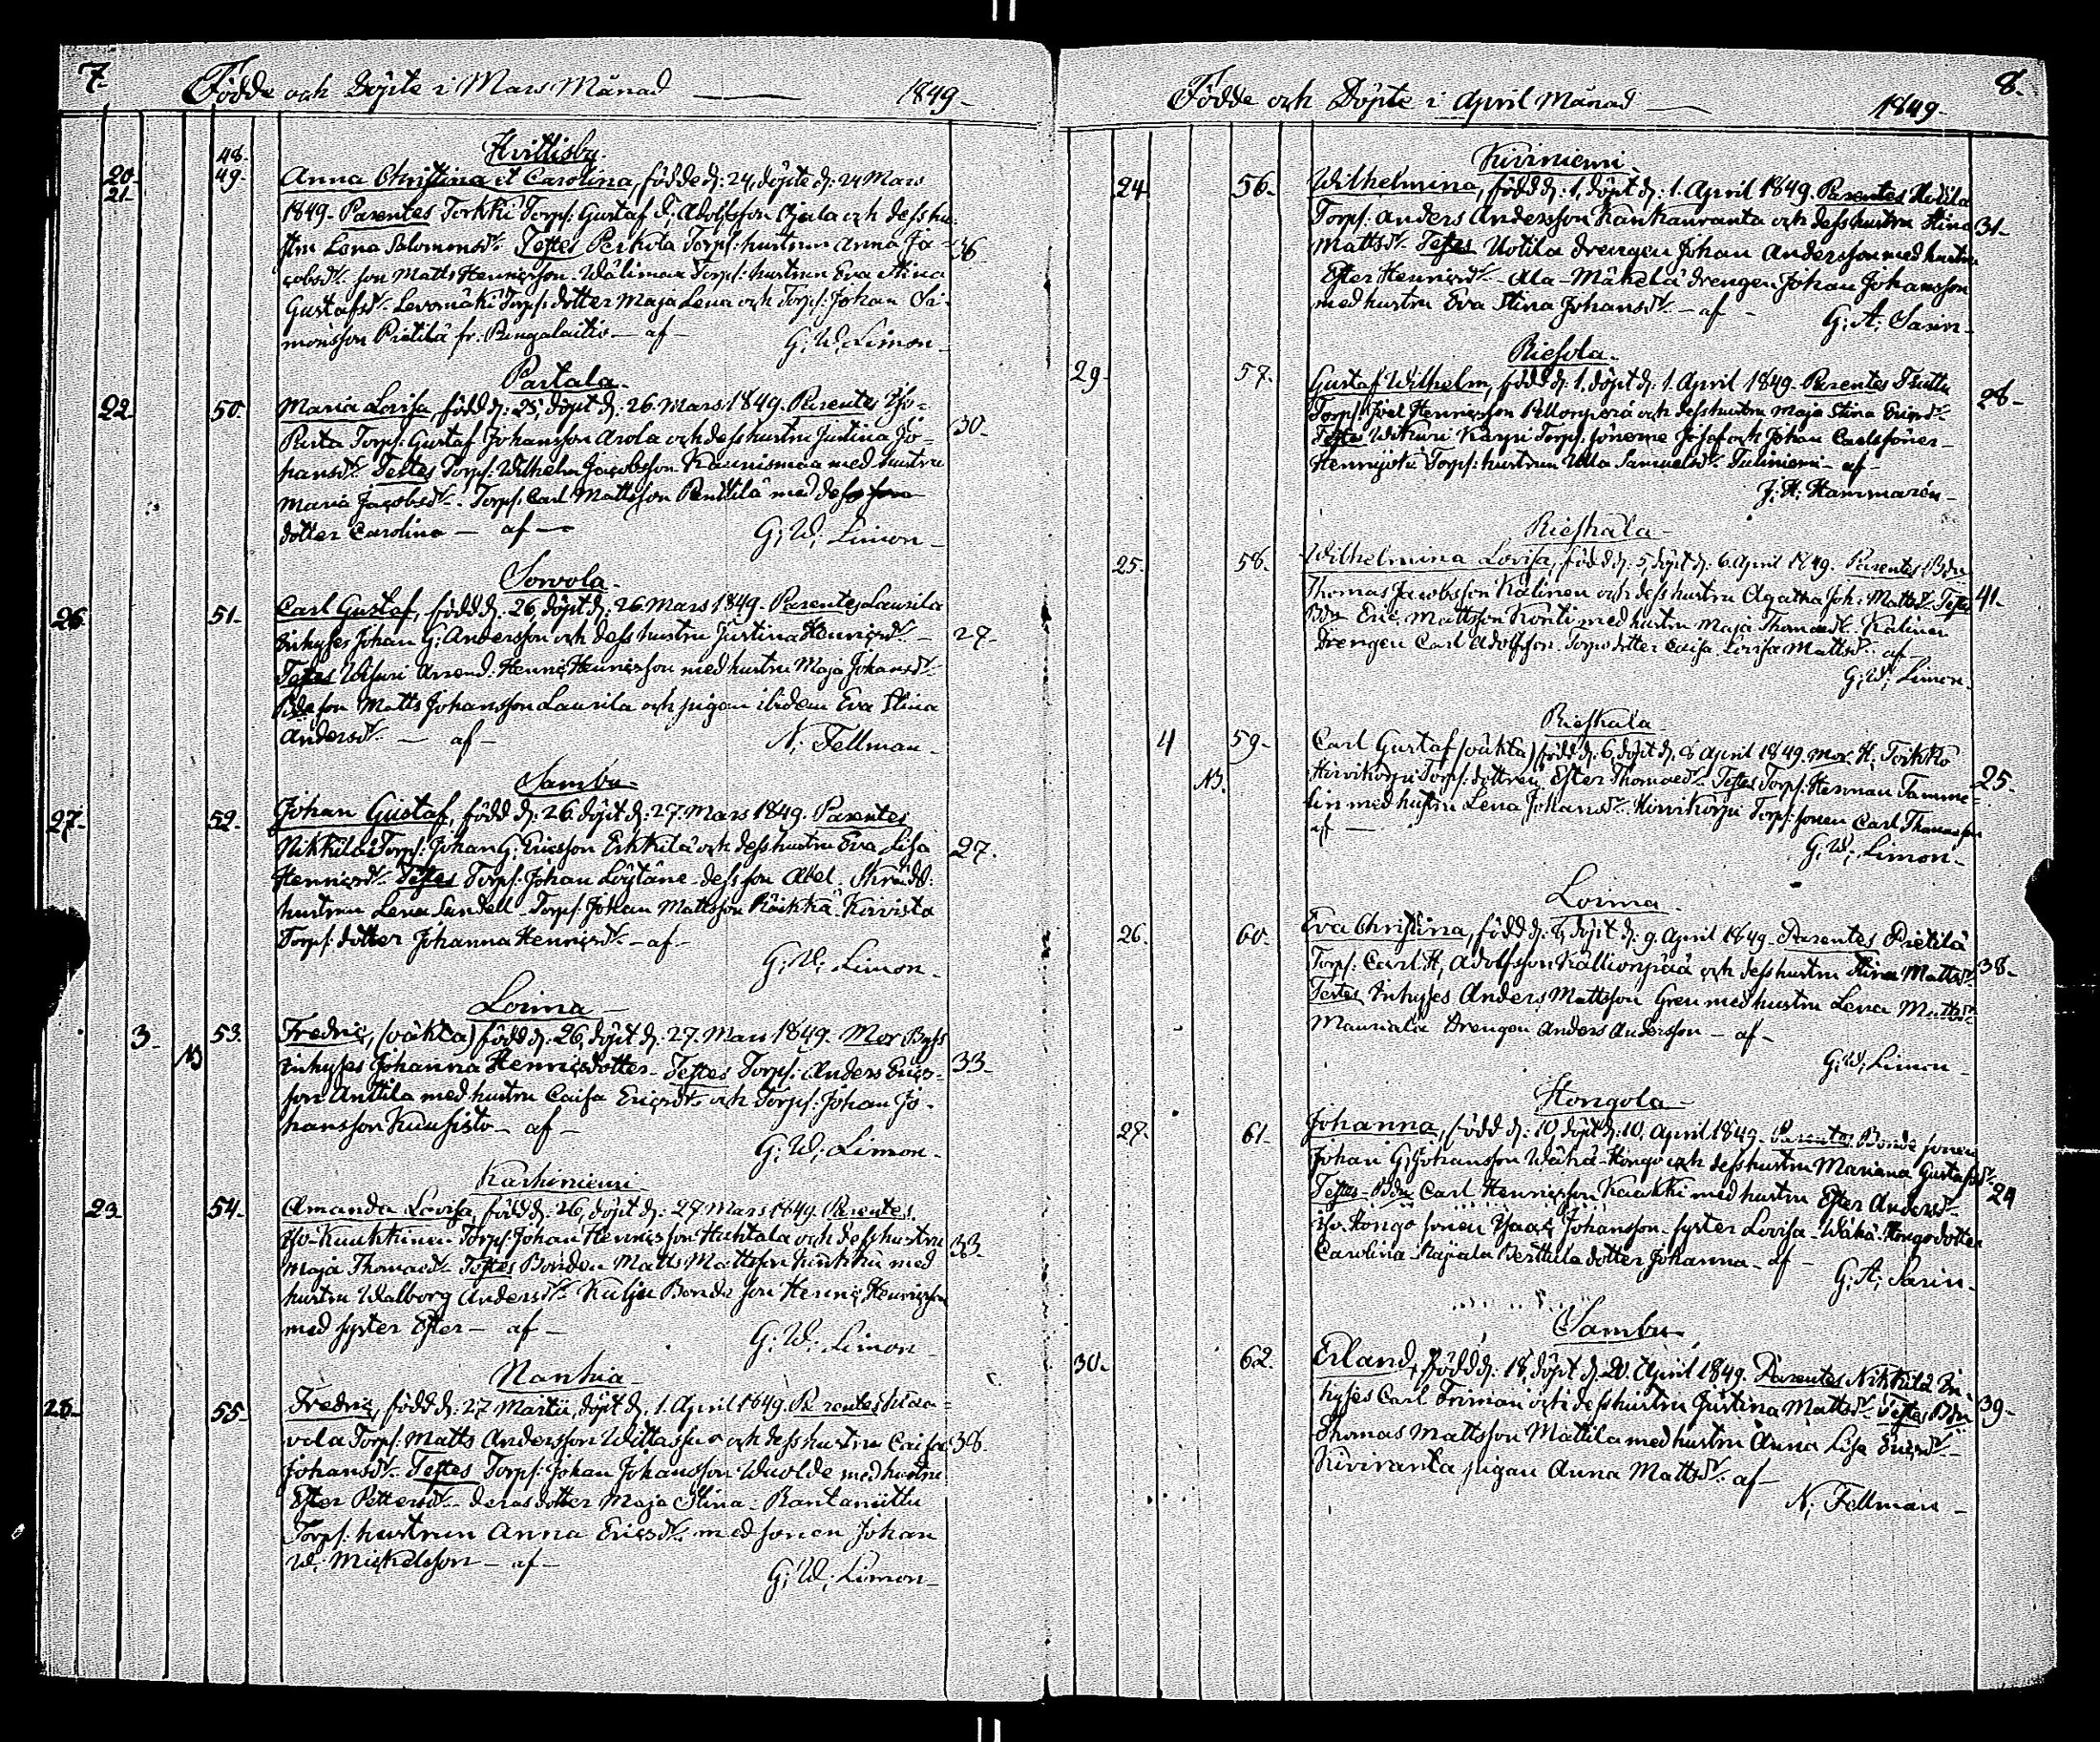 7.
Födde och Döpte i Mars Månad — 1849.
Hvittisby.
20. 48.
21. 49. Anna Christina et Carolina, födde d: 24, döpte d: 24 Mars
1849. Parentes Torkki Torp: Gustaf F: Adolfsson Ojala och dess hu-
stru Lena Salomonsdr. Testes Perkola Torp: hustrun Anna Ja- 36
cobsdr. son Matts Henricsson. Wälimaa Torp: hustrun Eva Stina
Gustafsdr. Levomäki Torp: dotter Maja Lena och Torp: Johan Si-
monsson Pietilä fr. Pungalaitio — af —
G: W: Limon
Partala.
22. 50. Maria Lovisa, född d: 25, döpt d: 26 Mars 1849. Parentes Iso-
Torp: Gustaf Johansson Arola och dess hustru Justina Jo- 30.
hansdr. Testes Torp: Wilhelm Jacobsson Kaunismaa med hustru
Maria Jacobsdr. Torp: Carl Mattsson Penttilä med dess
dotter Carolina — af —
G: W: Limon
Sorvola.
26. 51. Carl Gustaf, född d: 26, döpt d: 26 Mars 1849. Parentes Laurila
Inhyses Johan G: Andersson och dess hustru Justina Henricsdr. 27.
Testes Arrend: Henric Henricsson med hustru Maja Johansdr.
Bde son Matts Johansson Laurila och pigan ibidem Eva Stina
Andersdr. — af —
N: Fellman
Sambu
27. 52. Johan Gustaf, född d: 26, döpt d: 27. Mars 1849. Parentes
Nikkilä Torp: Johan G: Ericsson Erkkilä och dess hustru Eva Lisa 27.
Henricsdr. Testes Torp: Johan Löytäne. dess son Abel. Skrädd:
hustrun Lena Sundell. Torp: Johan Mattsson Räikkä. Koivisto
Torp: dotter Johanna Henricsdr. — af —
G: W: Limon
Loima
3. NB 53. Fredric, (oäkta) född d: 26, döpt d: 27. Mars 1849. Mor
Inhyses Johanna Henricsdotter. Testes Torp: Anders Erics- 33.
son Anttila med hustru Caisa Ericsdr. och Torp: Johan Jo-
hansson Kuusisto — af —
G: W: Limon
Karhiniemi
23. 54. Amanda Lovisa, född d: 26, döpt d: 27 Mars 1849. Parentes
Torp: Johan Henricsson Huhtala och dess hustru 33.
Maja Thomasdr. Testes Bonden Matts Mattsson med
hustru Walborg Andersdr. Kulju Bonde son Henric Henricsson
med syster Ester — af —
G: W: Limon
Nanhia
28. 55. Fredric, född d: 27 Martii, döpt d: 1. April 1849. Parentes
vola Torp: Matts Andersson och dess hustru Caisa 38.
Johansdr. Testes Torp: Johan Johansson Wuolde med hustru
Ester Pettersdr. deras dotter Maja Stina. Rantaniittu
Torp: hustrun Anna Ericsdr. med sonen Johan
W: Mickelsson — af —
G: W: Limon
8.
Födde och Döpte i April Månad — 1849.
Kiviniemi
24. 56. Wilhelmina, född d: 1, döpt d: 1. April 1849. Parentes Uotila
Torp: Anders Andersson Kankaanranta och dess hustru Stina 31.
Mattsdr. Testes Uotila drengen Johan Andersson med hustru
Ester Henricsdr. Ala-Mäkelä drengen Johan Johansson
med hustru Eva Stina Johansdr. — af —
G: A: Sarin
Riesola.
29. 57. Gustaf Wilhelm, född d: 1. döpt d: 1. April 1849. Parentes
Torp: Joel Henricsson och dess hustru Maja Stina Ericsdr. 28.
Testes Torp: sönerne Josef och Johan Carlssöner.
Torp: hustrun Ulla Samuelsdr. — af —
J: H: Hammarén
Rieskala
25. 58. Wilhelmina Lovisa, född d: 5, döpt d: 6 April 1849. Parentes Bdn
Thomas Jacobsson Kalinen och dess hustru Agatha Joh: Mattsdr. Testes 41.
Bdn Eric Mattsson Kontti med hustru Maja Thomasdr. Kalinen
Drengen Carl Adolfsson. Torp: dotter Caisa Lovisa Mattsdr. af
G: W: Limon.
Rieskala
4 NB. 59. Carl Gustaf (oäkta) född d: 6, döpt d: 8 April 1849. Mor. H: Torkko
Hirvikorpi Torp: dottren Ester Thomasdr. Testes Torp: Herman Tamme- 25.
lin med hustru Lena Johansdr. Hirvikorpi Torp: sonen Carl Thomasson
af —
G: W: Limon
Loima
26. 60. Eva Christina, född d: 8, döpt d: 9. April 1849. Parentes Pietilä
Torp: Carl H: Adolfsson Kallionpää och dess hustru Stina Mattsdr. 38.
Testes Inhyses Anders Mattsson Gren med hustru Lena Mattsdr.
Mauriala Drengen Anders Andersson — af —
G: W: Limon
Hongola
27. 61. Johanna, född d: 10, döpt d: 10. April 1849. Parentes Bonde sonen
Johan G: Johansson Wähä-Hongo och dess hustru Mariana Gustafsdr. 24
Testes. Bdn Carl Henricsson Kaukki med hustru Ester Andersdr.
Iso-Hongo sonen Isaac Johansson. syster Lovisa. Wähä-Hongo dotter
Carolina. Rajsala Perttula dotter Johanna — af —
G: A: Sarin
Sambu
30. 62. Erland, född d: 18, döpt d: 20. April 1849. Parentes Nikkilä In-
hyses Carl Friman och dess hustru Justina Mattsdr. Testes Bdn 39.
Thomas Mattsson Mattila med hustru Anna Lisa Ericsdr.
Kiviranta pigan Anna Mattsdr. af —
N: Fellman